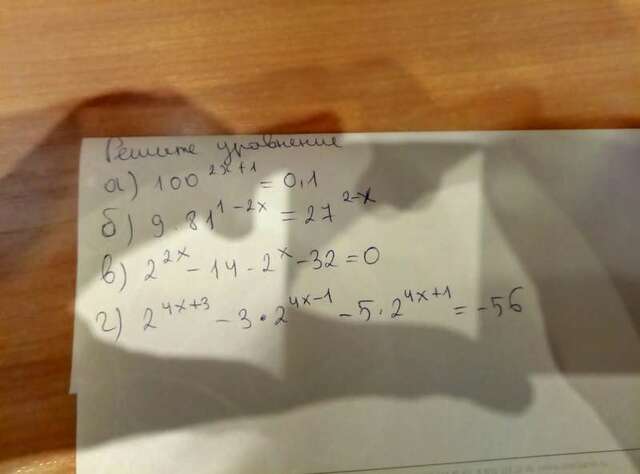 Решите уравнение
а) 100^{2x+1} = 0,1
б) 9 · 81^{1-2x} = 27^{2-x}
в) 2^{2x} - 14 · 2^{x} - 32 = 0
г) 2^{4x+3} - 3 · 2^{4x-1} - 5 · 2^{4x+1} = -56